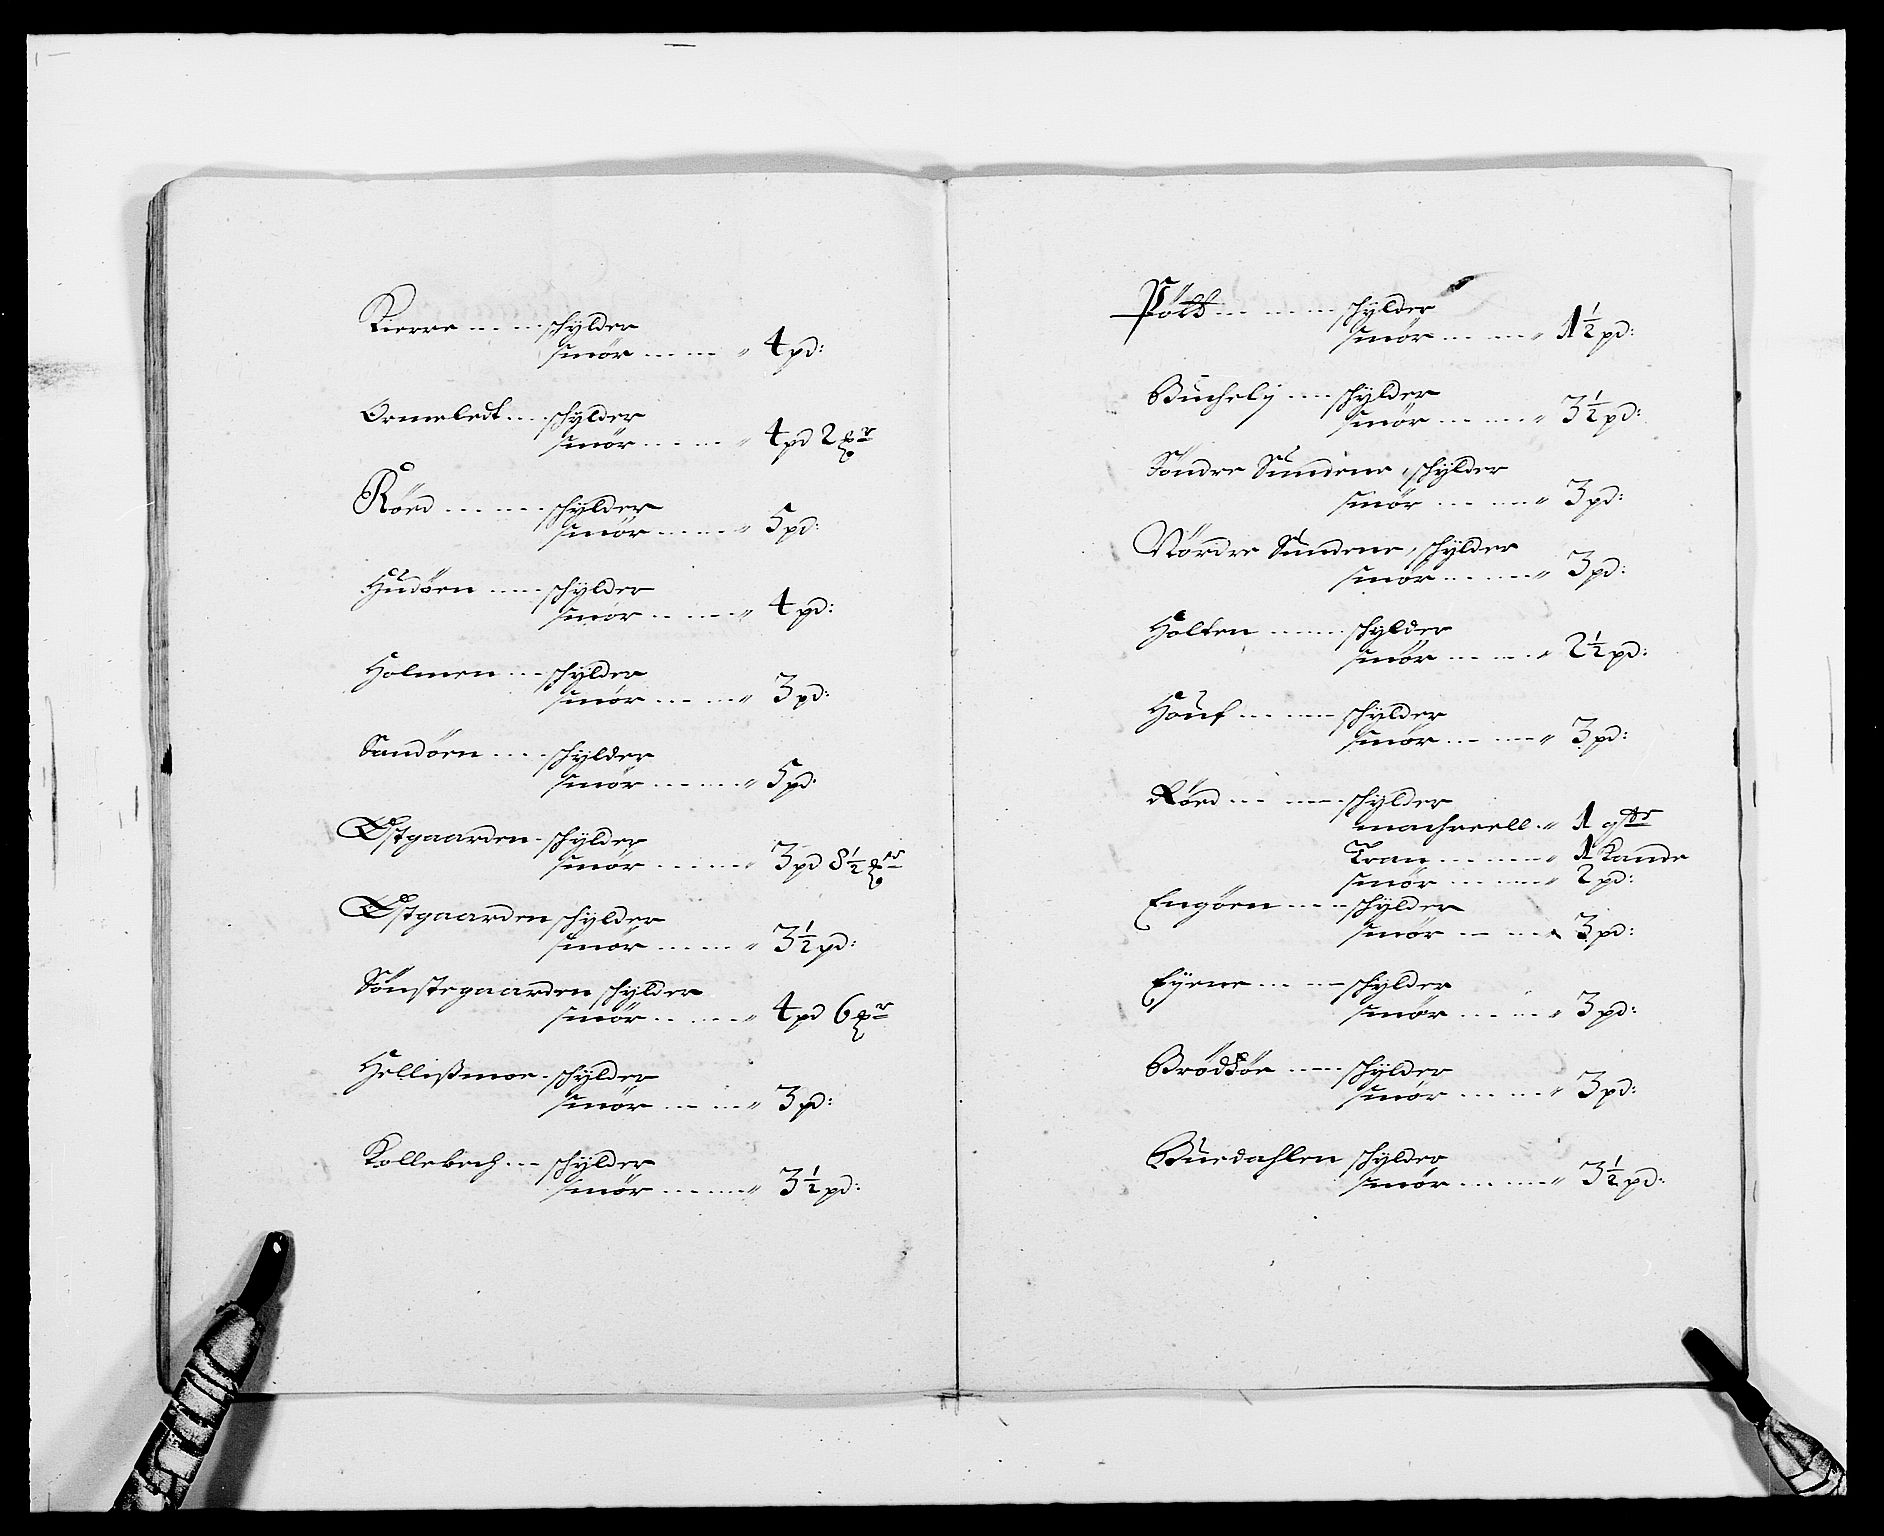 Kierre ... ... schylder
smör ... ... " 4 pd:
Ormeledt ... schylder
smör ... ... " 4 pd 2 ℔r
Röed ... ... schylder
smör ... ... " 5 pd:
Hudöen ... ... schylder
smör ... ... " 4 pd:
Holmen ... schylder
smör ... ... " 3 pd:
Sandöen ... schylder
smör ... ... " 5 pd:
Östgaarden schylder
smör ... ... " 3 pd 8½ ℔r
Östgaarden schylder
smör ... ... " 3½ pd:
Sönstegaarden schylder
smör ... ... " 4 pd 6 ℔r
Hellißmoe schylder
smör ... ... " 3 pd:
Kollebech ... schylder
smör ... ... " 3½ pd:
Pölt ... ... schylder
smör ... ... " 1½ pd:
Buchely ... schylder
smör ... ... " 3½ pd:
Söndre Sundene, schylder
smör ... ... " 3 pd:
Nördre Sundene, schylder
smör ... ... " 3 pd:
Holten ... ... schylder
smör ... ... " 2½ pd:
Houf ... ... schylder
smör ... ... " 3 pd:
Röed ... ... schylder
machreell " 1
Tran ... ... " 1 Kande
smör ... ... " 2 pd:
Engöen ... schylder
smör ... ... " 3 pd:
Eyene ... ... schylder
smör ... ... " 3 pd:
Brödsöe ... schylder
smör ... ... " 3 pd:
Buedahlen schylder
smör ... ... " 3½ pd: